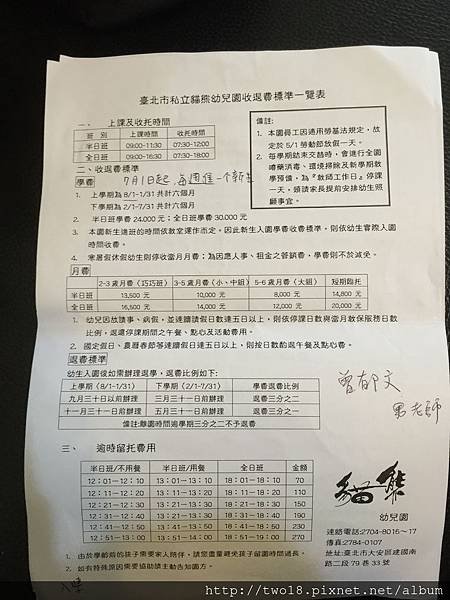 臺北市私立貓熊幼兒園收退費標準一覽表
一、 上課及收托時間
班別 上課時間 收托時間
半日班 09:00-11:30 07:30-12:00
全日班 09:00-16:30 07:30-18:00
備註:
1. 本園員工因適用勞基法規定，故
定於 5/1 勞動節放假一天。
2. 每學期結束交替時，會進行全園
噴藥消毒、環境掃除及新學期教
學預備，為『教師工作日』停課
一天，煩請家長提前安排幼生照
顧事宜。
二、收退費標準
學費 7月1日起，每週進一個新生
1. 上學期為 8/1-1/31 共計六個月
下學期為 2/1-7/31 共計六個月
2. 半日班學費 24,000 元；全日班學費 30,000 元
3. 本園新生進班的時間依教室運作而定，因此新生入園學費收費標準，則依幼生實際入園
時間收費。
4. 寒暑假休假幼生則停收當月月費；為因應人事、租金之管銷費，學費則不於減免。
月費
2-3 歲月費（巧巧班） 3-5 歲月費（小、中組） 5-6 歲月費（大組） 短期臨托
半日班 13,500 元 10,000 元 8,000 元 14,800 元
全日班 16,500 元 14,000 元 12,000 元 20,000 元
1. 幼兒因故請事、病假，並連續請假日數達五日以上，則依停課日數與當月教保服務日數
比例，退還停課期間之午餐、點心及活動費用。
2. 國定假日、農曆春節等連續假日達五日以上，則按日數酌退午餐及點心費。
退費標準
幼生入園後如需辦理退學，退費比例如下:
上學期（8/1-1/31） 下學期（2/1-7/31） 學費退費比例
九月三十日以前辦理 三月三十一日前辦理 退費三分之二
十一月三十一日前辦理 五月三十一日前辦理 退費三分之一
備註:離園時間逾學期三分之二不予退費
曾郁文
男老師
三、 逾時留托費用
半日班/不用餐 半日班/用餐 全日班 金額
12：01－12：10 13：01－13：10 18：01－18：10 70
12：11－12：20 13：11－13：20 18：11－18：20 110
12：21－12：30 13：21－13：30 18：21－18：30 150
12：31－12：40 13：31－13：40 18：31－18：40 190
12：41－12：50 13：41－13：50 18：41－18：50 230
12：51－13：00 13：51－14：00 18：51－19：00 270
1. 由於學齡前的孩子需要家人陪伴，請您盡量避免孩子留園時間過長。
2. 如有特殊原因需要協助請主動告知園方。
貓熊
幼兒園
連絡電話:2704-8016～17
傳真:2784-0107
地址:臺北市大安區建國南
路二段 79 巷 33 號
http://two18.pixnet.net/album